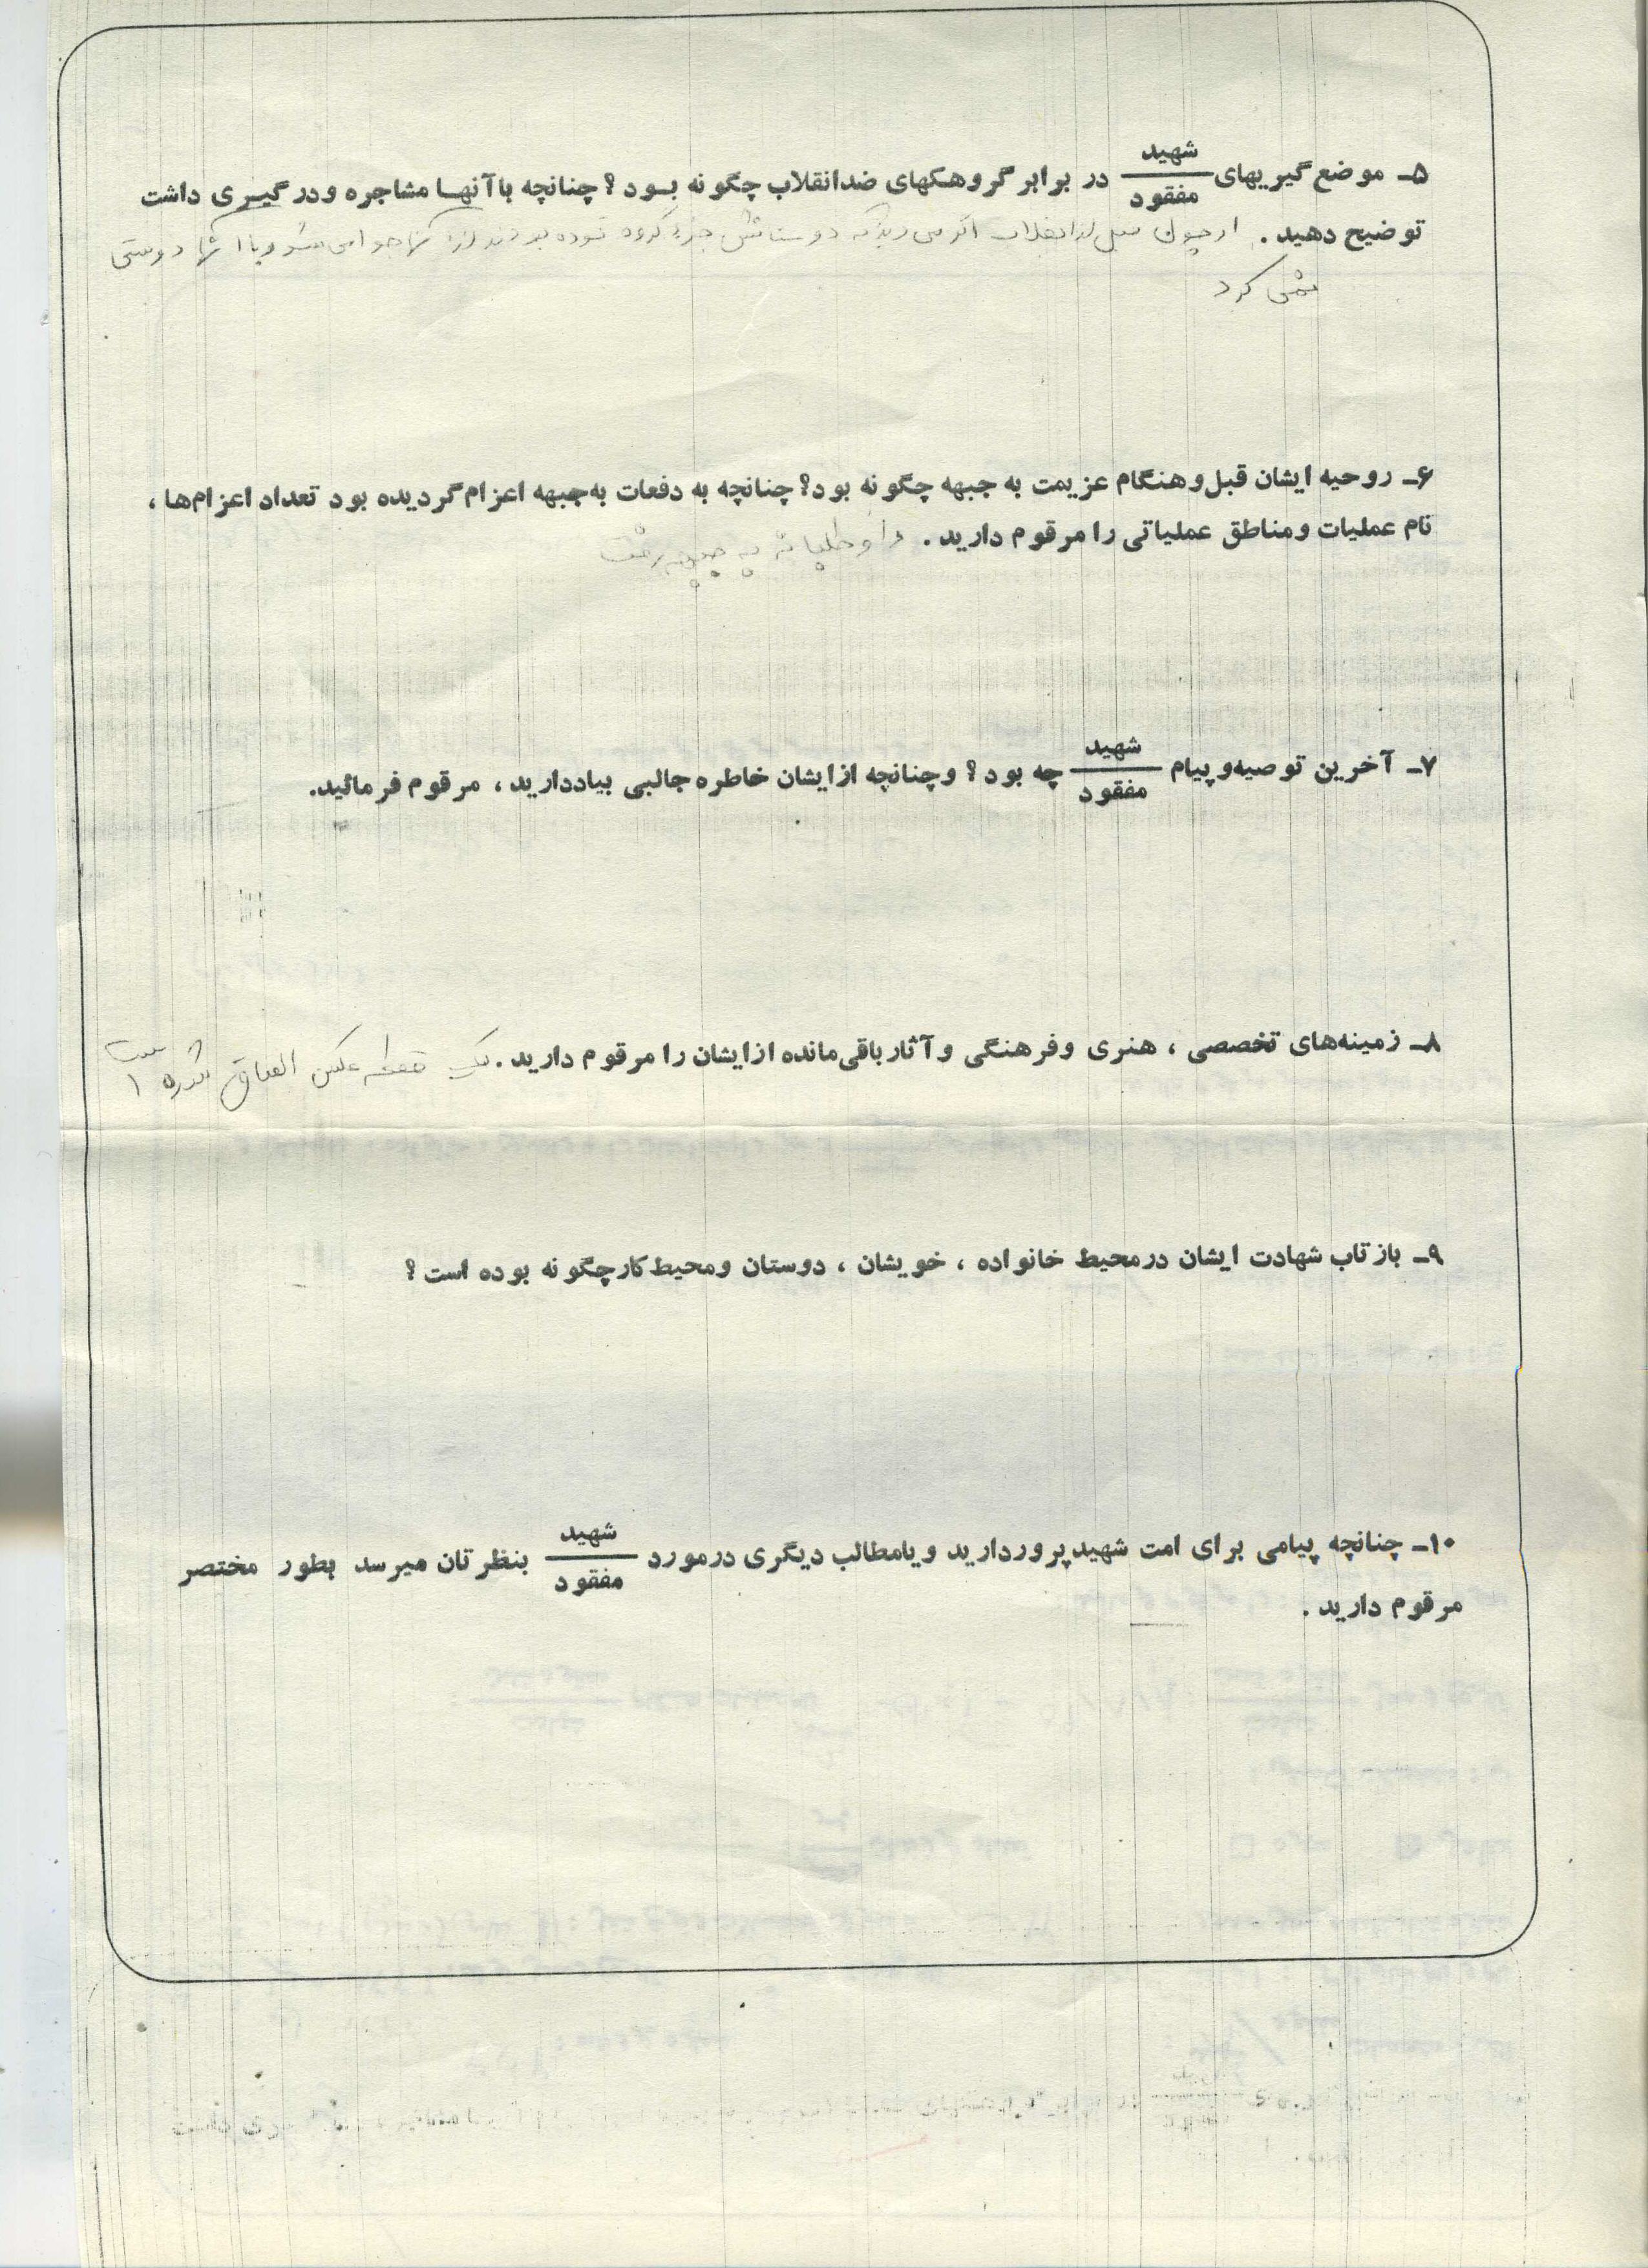 ۵ـ موضع گیریهای شهید/مفقود در برابر گروهکهای ضدانقلاب چگونه بود؟ چنانچه باآنها مشاجره و درگیری داشت
توضیح دهید. قبل از انقلاب اگر می دید که دوستانش جزء گروه توده بودند از آنها جدا می شد و با آنها دوستی
نمی کرد
۶ـ روحیه ایشان قبل و هنگام عزیمت به جبهه چگونه بود؟ چنانچه به دفعات به جبهه اعزام گردیده بود تعداد اعزام‌ها،
نام عملیات و مناطق عملیاتی را مرقوم دارید. داوطلبانه به جبهه رفت
۷ـ آخرین توصیه و پیام شهید/مفقود چه بود؟ و چنانچه از ایشان خاطره جالبی بیاد دارید، مرقوم فرمائید.
۸ـ زمینه‌های تخصصی، هنری و فرهنگی و آثار باقی‌مانده از ایشان را مرقوم دارید. یک قطعه عکس الصاق شده است
۹ـ بازتاب شهادت ایشان در محیط خانواده، خویشان، دوستان و محیط کار چگونه بوده است؟
۱۰ـ چنانچه پیامی برای امت شهیدپرور دارید و یا مطالب دیگری در مورد شهید/مفقود بنظرتان میرسد بطور مختصر
مرقوم دارید.